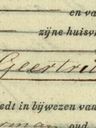 en va
zijne huisv
Geertru
edt in bijwezen van
man oud